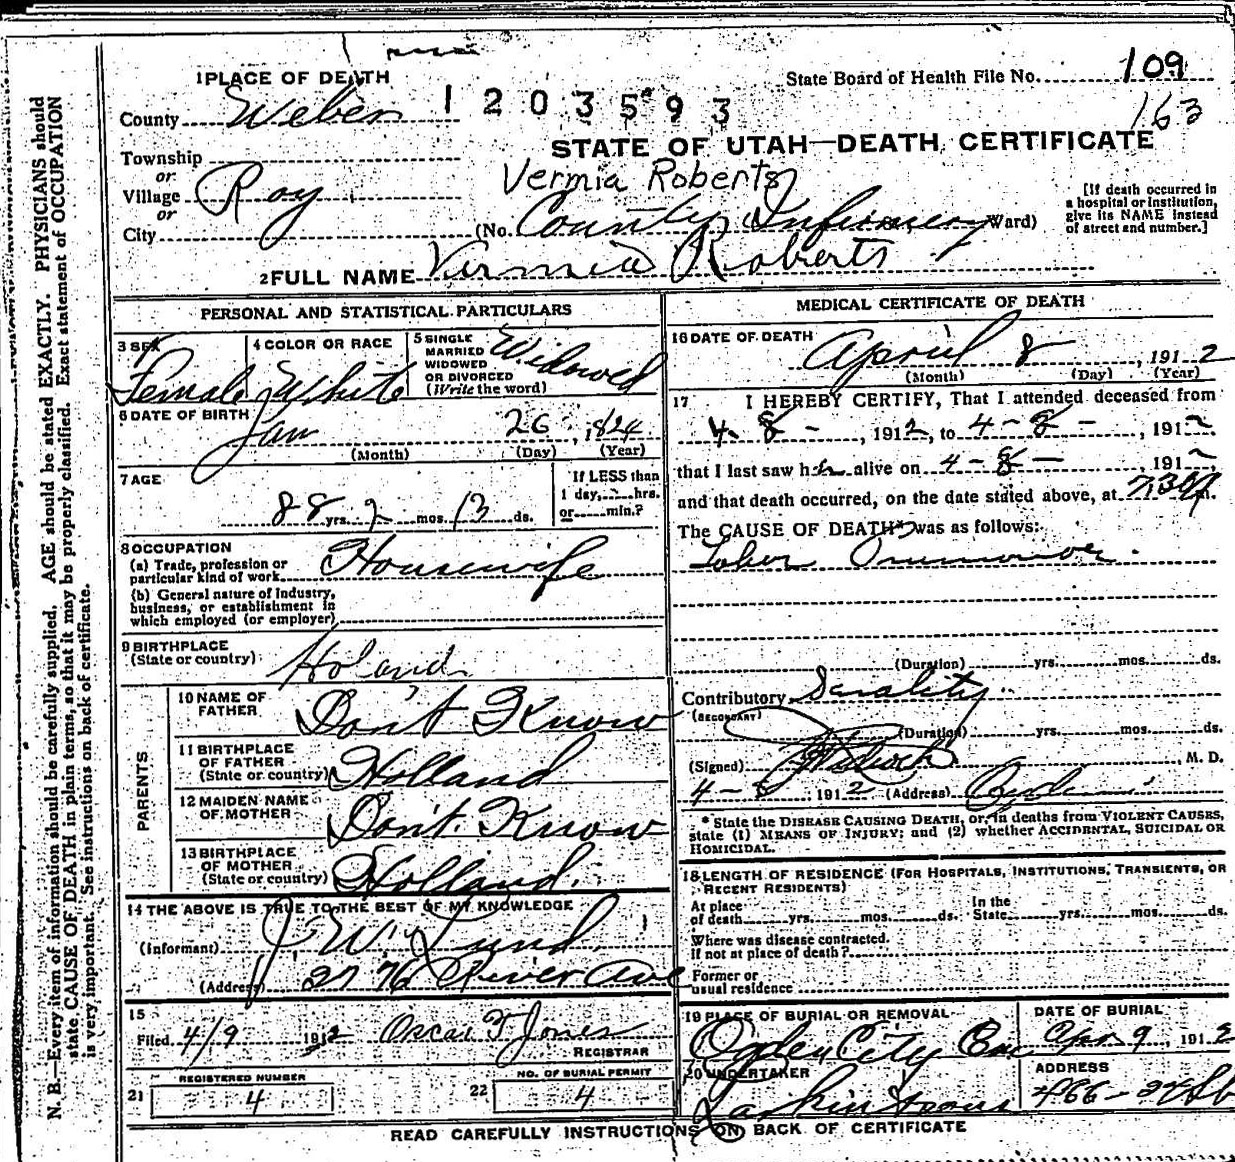 1 PLACE OF DEATH
State Board of Health File No. 109
County Weber
1203593
163
STATE OF UTAH—DEATH CERTIFICATE
Township
or
Vermia Roberts
Village Roy
or
City
(No. County Infirmery Ward)
[If death occurred in
a hospital or institution,
give its NAME instead
of street and number.]
2 FULL NAME Vermia Roberts
PERSONAL AND STATISTICAL PARTICULARS
3 SEX
Female
4 COLOR OR RACE
White
5 SINGLE
MARRIED
WIDOWED
OR DIVORCED
(Write the word)
Widowed
6 DATE OF BIRTH
Jan 26, 1824
(Month) (Day) (Year)
7 AGE
88 yrs. 2 mos. 13 ds.
If LESS than
1 day, hrs.
or min.?
8 OCCUPATION
(a) Trade, profession or
particular kind of work Housewife
(b) General nature of industry,
business, or establishment in
which employed (or employer)
9 BIRTHPLACE
(State or country) Holand
PARENTS
10 NAME OF
FATHER Don't Know
11 BIRTHPLACE
OF FATHER
(State or country) Holland
12 MAIDEN NAME
OF MOTHER Don't Know
13 BIRTHPLACE
OF MOTHER
(State or country) Holland.
14 THE ABOVE IS TRUE TO THE BEST OF MY KNOWLEDGE
(Informant) J W Lund
(Address) 2776 River Ave
15
Filed 4/9 1912 Oscar T Jones
REGISTRAR
REGISTERED NUMBER
21 4
NO. OF BURIAL PERMIT
22 4
MEDICAL CERTIFICATE OF DEATH
16 DATE OF DEATH
April 8, 1912
(Month) (Day) (Year)
17 I HEREBY CERTIFY, That I attended deceased from
4-8-, 1912, to 4-8-, 1912,
that I last saw her alive on 4-8-, 1912,
and that death occurred, on the date stated above, at 7:30 m.
The CAUSE OF DEATH* was as follows:
Lober
(Duration) yrs. mos. ds.
Contributory Senality
(SECONDARY)
(Duration) yrs. mos. ds.
(Signed) M. D.
4-8 1912 (Address) Ogden
* State the DISEASE CAUSING DEATH, or, in deaths from VIOLENT CAUSES,
state (1) MEANS OF INJURY; and (2) whether ACCIDENTAL, SUICIDAL OR
HOMICIDAL.
18 LENGTH OF RESIDENCE (FOR HOSPITALS, INSTITUTIONS, TRANSIENTS, OR
RECENT RESIDENTS)
At place
of death yrs. mos. ds.
In the
State yrs. mos. ds.
Where was disease contracted.
If not at place of death?
Former or
usual residence
19 PLACE OF BURIAL OR REMOVAL
Ogden City Cem
DATE OF BURIAL
Apr 9, 1912
20 UNDERTAKER
Larkin & Sons
ADDRESS
466-24 St
READ CAREFULLY INSTRUCTIONS ON BACK OF CERTIFICATE
N. B.—Every item of information should be carefully supplied. AGE should be stated EXACTLY. PHYSICIANS should
state CAUSE OF DEATH in plain terms, so that it may be properly classified. Exact statement of OCCUPATION
is very important. See instructions on back of certificate.